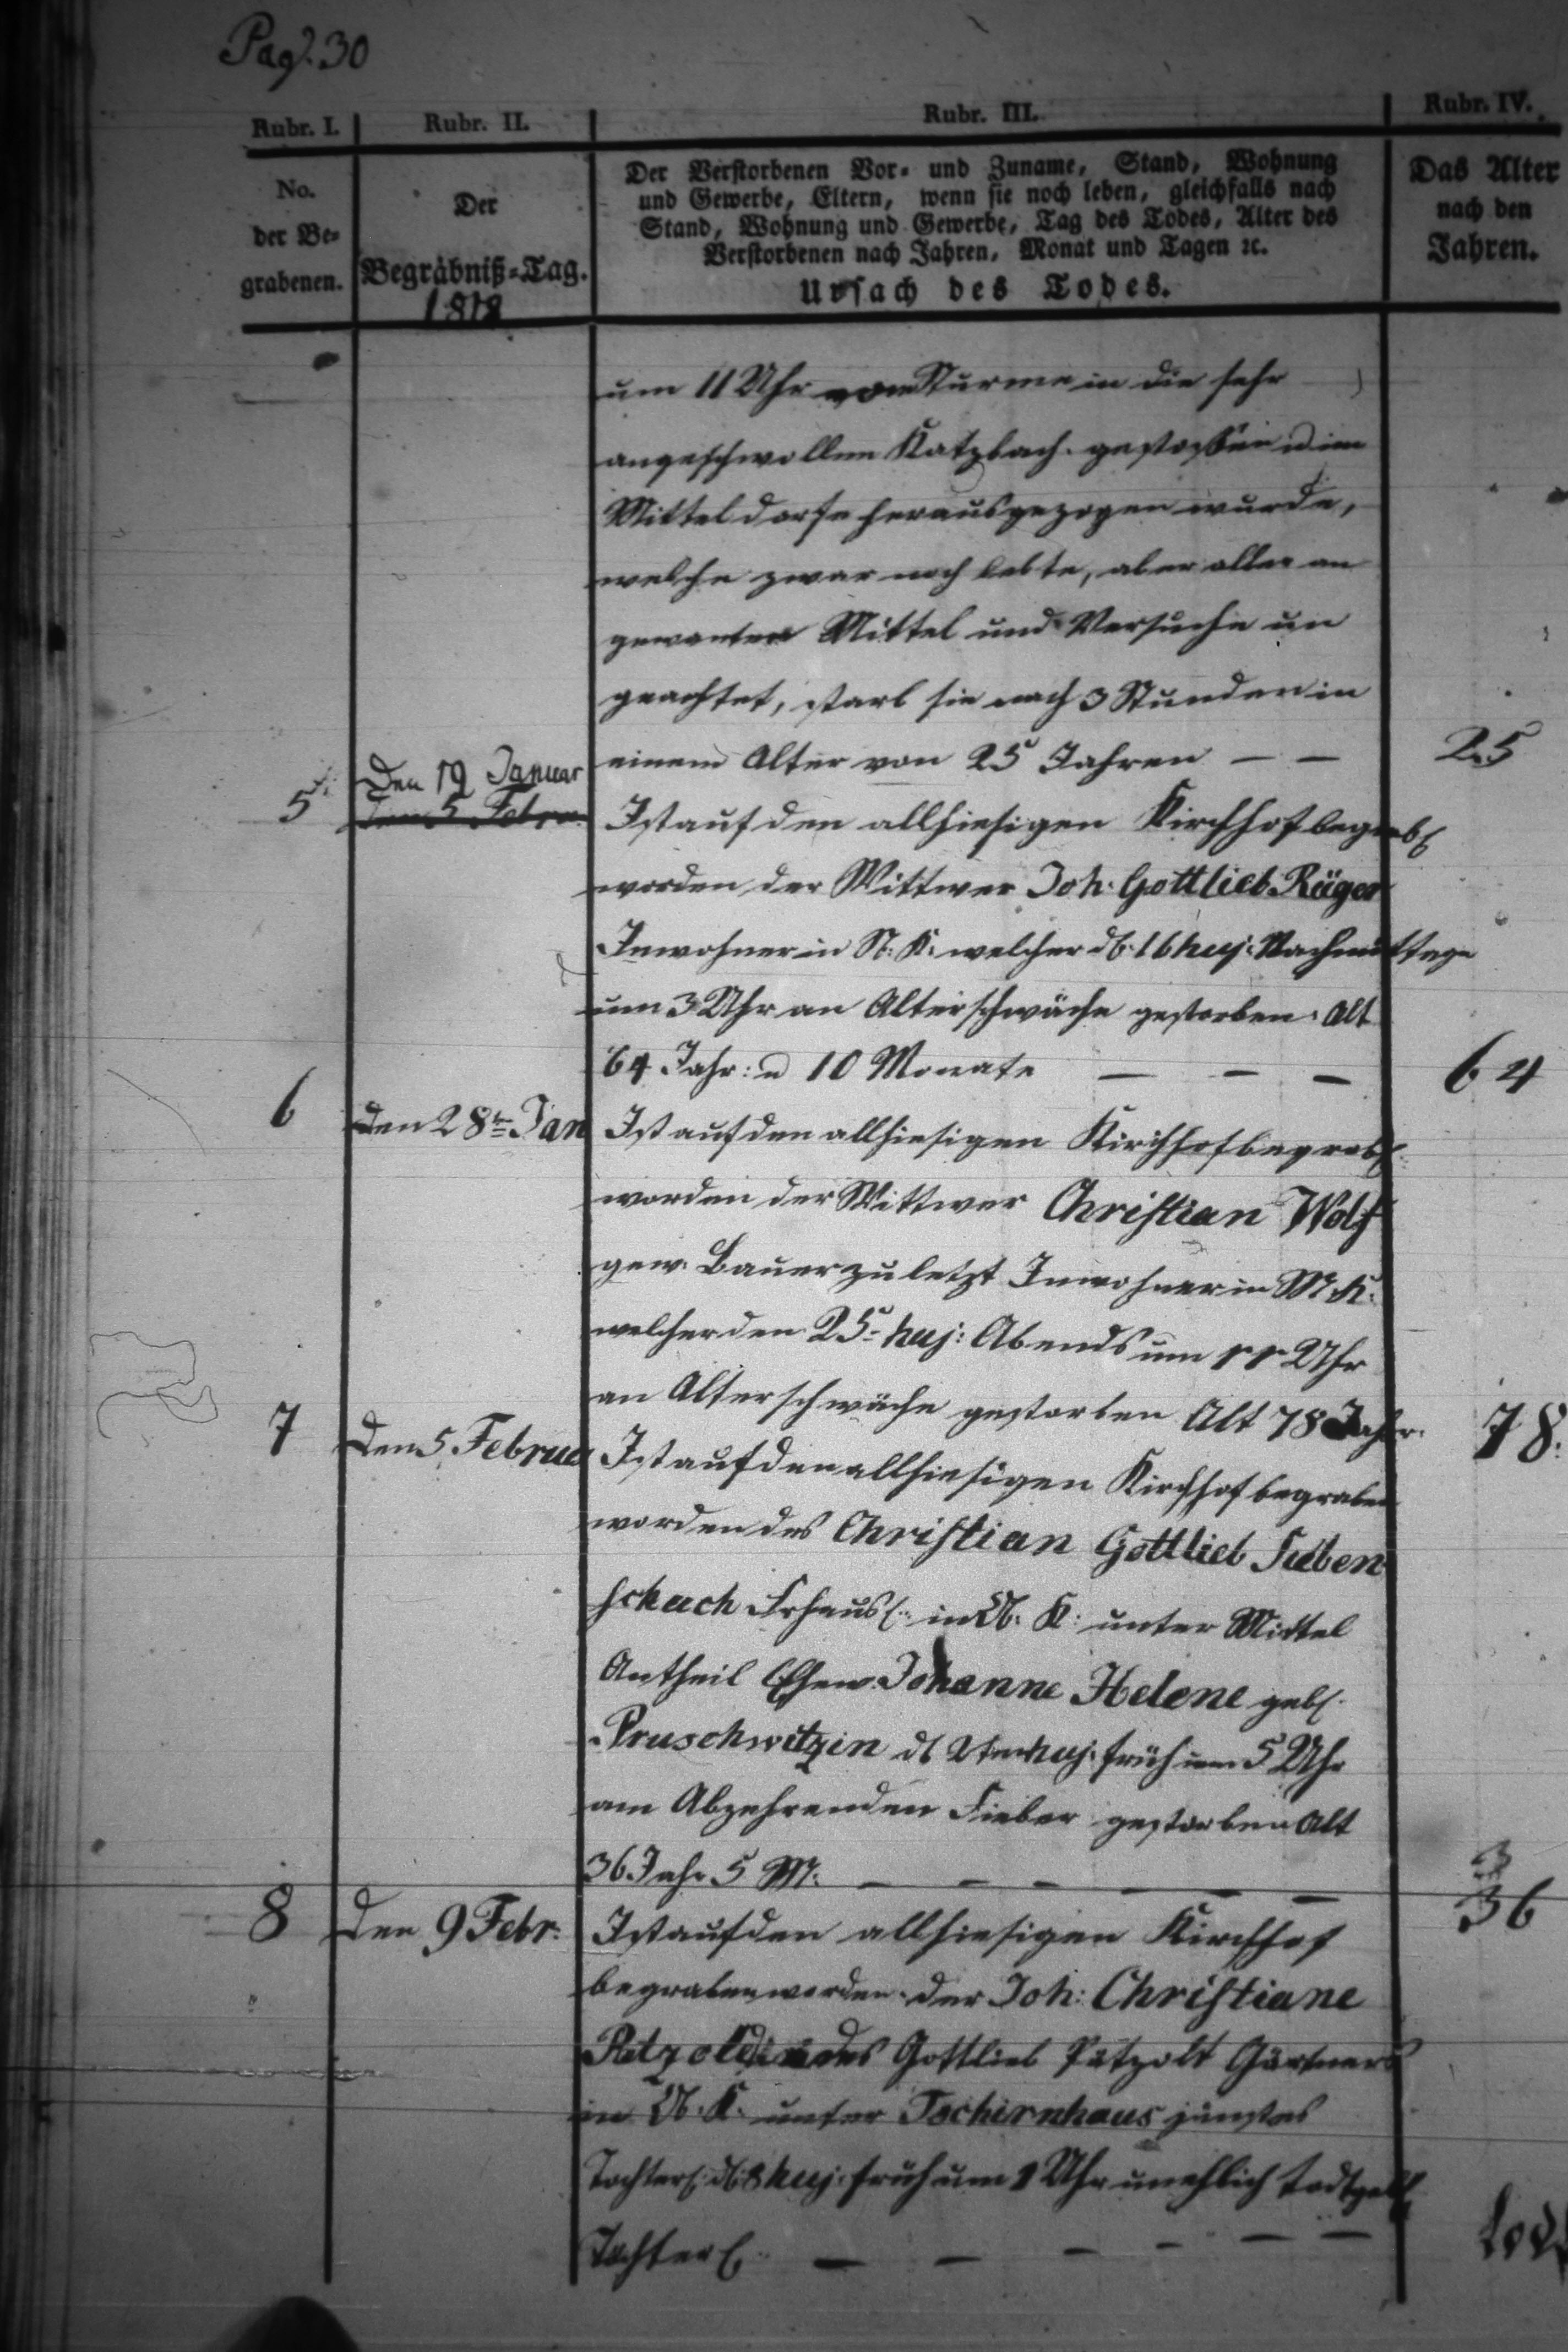 Pag. 30
Rubr. I.
Rubr. II.
Rubr. III.
Rubr. IV.
No.
der Be-
grabenen.
Der
Begräbniß-Tag.
1818
Der Verstorbenen Vor- und Zuname, Stand, Wohnung
und Gewerbe, Eltern, wenn sie noch leben, gleichfalls nach
Stand, Wohnung und Gewerbe, Tag des Todes, Alter des
Verstorbenen nach Jahren, Monat und Tagen ꝛc.
Ursach des Todes.
Das Alter
nach den
Jahren.
um 11 Uhr vom Sturme in die sehr
angeschwollen Katzbach gestossen u im
Mittel dorfe herausgezogen wurde,
welche zwar noch lebte, aber aller an
gewanten Mittel und Versuche un
geachtet, starb sie nach 3 Stunden in
einem Alter von 25 Jahren — —
25
5
Den 19 Januar
Den 5 Febru
Ist auf den allhiesigen Kirchhof begrab
worden der Wittwer Joh: Gottlieb Rüger
Inwohner in N: K: welcher d 16 huj: Nachmittage
um 3 Uhr an Alterschwäche gestorben. Alt
64 Jahr: u 10 Monate — — —
64
6
Den 28 Jan
Ist auf den allhiesigen Kirchhof begrab
worden der Wittwer Christian Wolf
gew: Bauer zuletzt Inwohner in M K:
welcher den 25 huj: Abends um 11 Uhr
an Alterschwäche gestorben Alt 78 Jahr.
78.
7
Den 5 Februa
Ist auf den allhiesigen Kirchhof begraben
worden des Christian Gottlieb Sieben
schuch Frhäusl: in N: K: unter Mittel
Antheil Ehew: Johanne Helene geb
Pruschwitzin d huj: früh um 5 Uhr
am Abzehrenden Fieber gestorben Alt
36 Jahr 5 M: — — — — —
36
8
Den 9 Febr:
Ist auf den allhiesigen Kirchhof
begraben worden der Joh: Christiane
Petzoldin des Gottlieb Pätzolt Gärtners
in N. K. unter Tschirnhaus jüngstes
Tochter d 8 huj: früh um 1 Uhr unehlich todtgeb
Tochter — — — — — —
tod